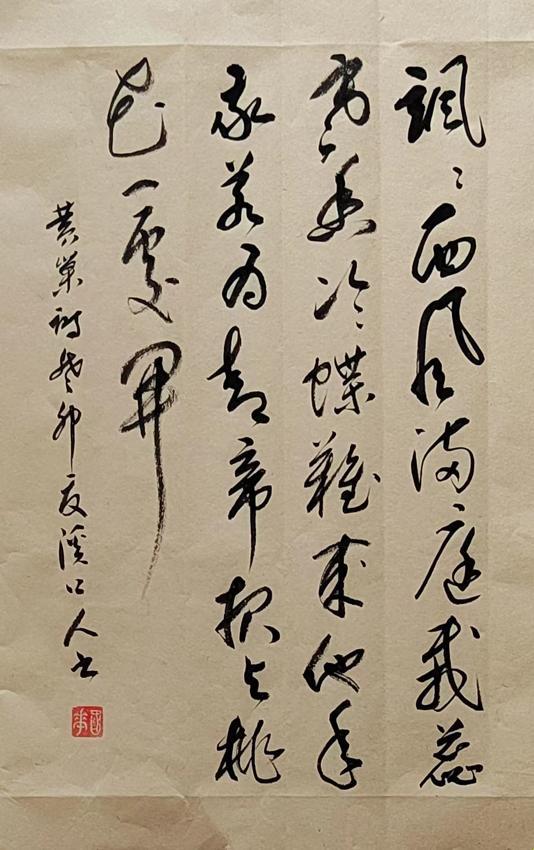 颯〻西風滿庭栽蕊
寒香冷蝶難來他年
我若为青帝报与桃
花一處開
黄巢詩癸卯夏溪口人书